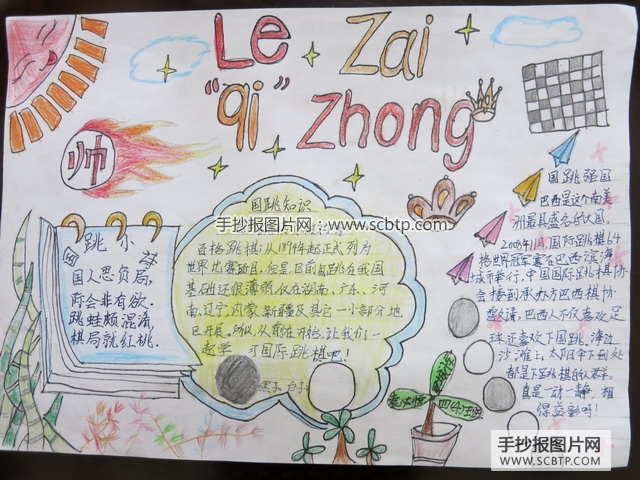 Le Zai
"qi" Zhong
帅
跳小
国人思负局,
所会非有欲.
跳蛙颇混淆,
棋局就红桃.
国跳知识
手抄报图片网:www.scbtp.com
百格跳棋:从1894年起正式列为
世界比赛项目,但是,目前国跳在我国
基础还很薄弱,仅在海南、广东、河
南、辽宁、内蒙、新疆及其它一小部分地
区开展,所以,从现在开始,让我们一
起学习国际跳棋吧!
黑子
国跳强国
巴西是这个南美
洲最具盛名的大国,
国际跳棋64
格世界冠军赛在巴西滨海
城市举行,中国国际跳棋协
会接到承办方巴西棋协
邀请,巴西人不仅喜欢足
球还喜欢下国跳,海边
沙滩上,太阳伞下到处
都是下跳棋的人群。
真是一动一静,相
得益彰呀!
四(4)班
手抄报图片网
WWW.SCBTP.COM